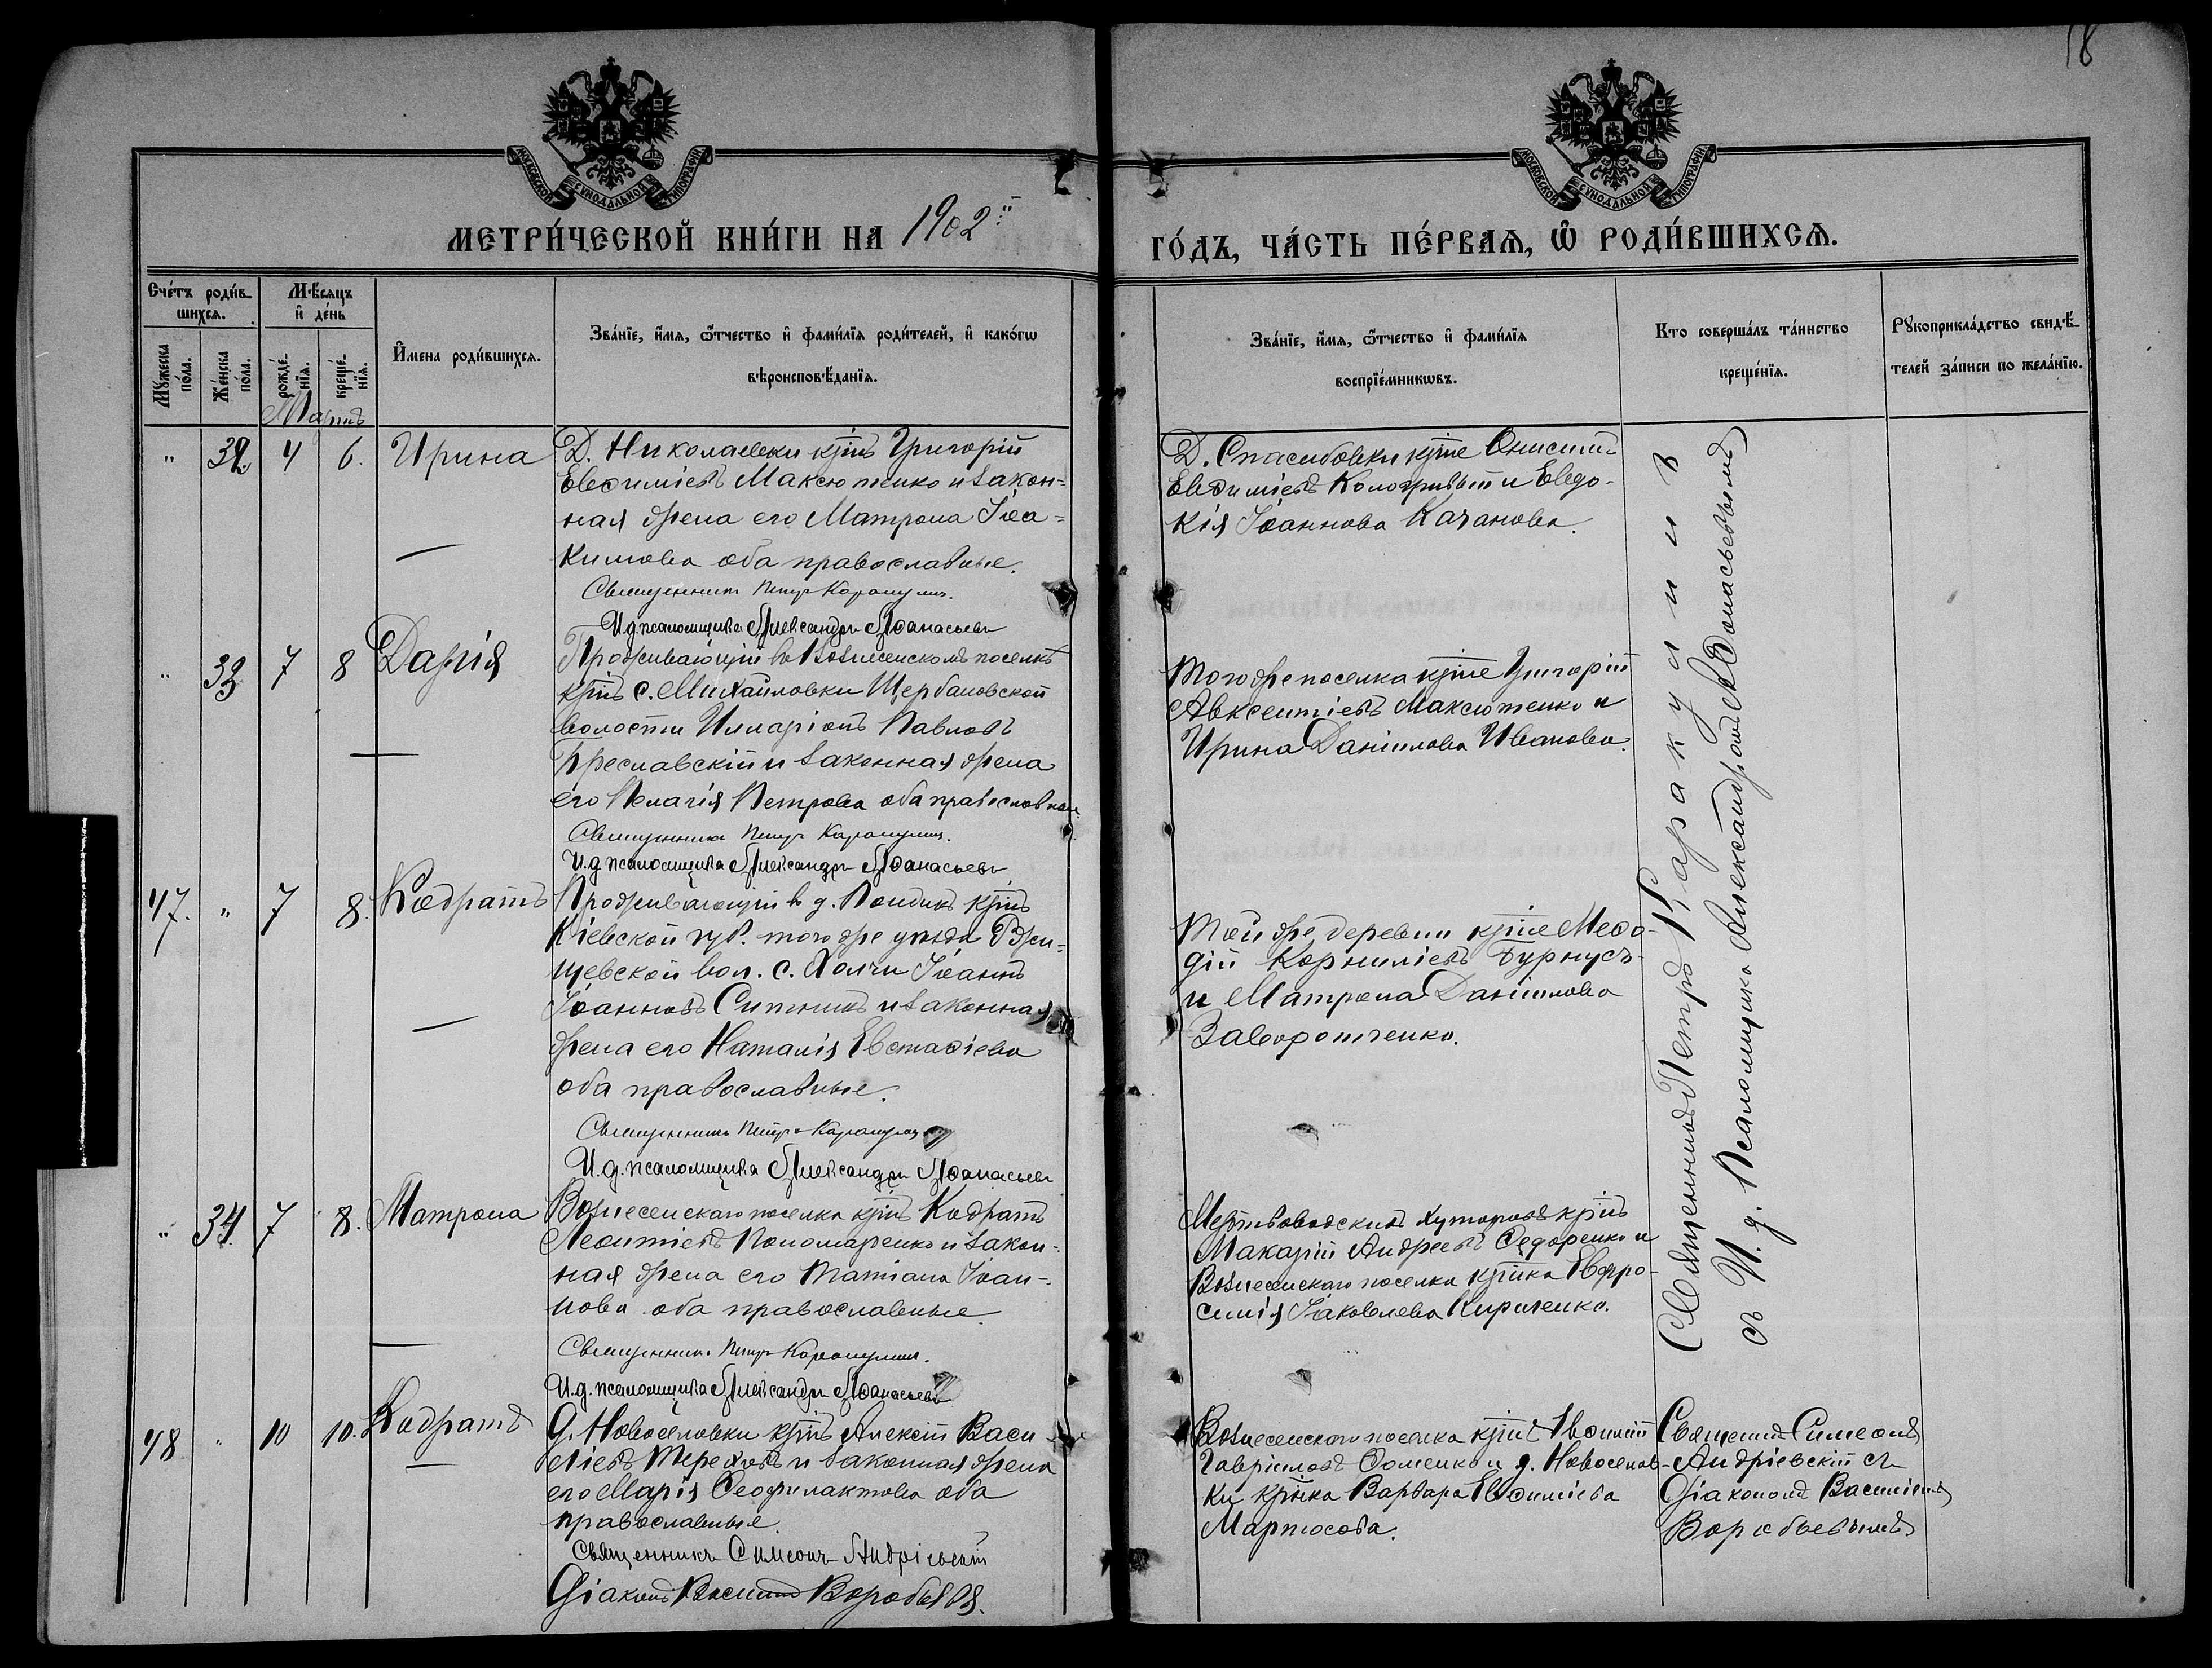 18
МОСКОВСКОЙ СѴНОДАЛЬНОЙ ТИПОГРАФІИ
МОСКОВСКОЙ СѴНОДАЛЬНОЙ ТИПОГРАФІИ
МЕТРИ́ЧЕСКОЙ КНИ́ГИ НА 1902й
ГО́ДЪ, ЧА́СТЬ ПЕ́РВАѦ, Ѡ҆ РОДИ́ВШИХСѦ.
Сче́тъ роди́в-
шихсѧ.
Мꙋ́жеска по́ла.
Же́нска по́ла.
Мѣ́сѧцъ
и҆ де́нь
рожде́-
нїѧ.
креще́-
нїѧ.
И҆мена роди́вшихсѧ.
Зва́нїе, и҆́мѧ, ѻ҆́тчество и҆ фами́лїѧ роди́телей, и҆ како́гѡ
вѣроисповѣ́данїѧ.
Зва́нїе, и҆́мѧ, ѻ҆́тчество и҆ фами́лїѧ
воспрїе́мникѡвъ.
Кто соверша́лъ та́инство
креще́нїѧ.
Рꙋкоприкла́дство свидѣ́-
телей за́писи по жела́нїю.
Мартъ
" 32 4 6. Ирина
Д. Николаевки крнъ Григорій
Евѳиміевъ Максютенко и закон=
ная жена его Матрона Іоа=
кимова оба православные.
Священникъ Петръ Каракулинъ.
И.д. псаломщика Александръ Аѳанасьевъ
Д. Спасибовки крне Онисимъ
Евѳиміевъ Колотривый и Евдо-
кія Іоаннова Качанова.
" 33 7 8 Дарія
Проживающій въ Вознесенскомъ поселкѣ
крнъ с. Михайловки Щербановской
волости Иларіонъ Павловъ
Преславскій и законная жена
его Пелагія Петрова оба православные.
Священникъ Петръ Каракулинъ.
И.д. псаломщика Александръ Аѳанасьевъ
Того же поселка крне Григорій
Авксентіевъ Максютенко и
Ирина Даніилова Иванова.
47. " 7 8. Кодратъ
Проживающій в д. крнъ
Кіевской губ. того же уѣзда Ржи-
щевской вол. с. Іоаннъ
Іоанновъ Ситникъ и законная
жена его Наталія Евстаѳіева
оба православные.
Священникъ Петръ Каракулинъ
И.д. псаломщика Александръ Аѳанасьевъ
Той же деревни крне Меѳо-
дій Корниліевъ Бурнусъ
и Матрона Даніилова
Заворотченко.
" 34. 7 8. Матрона
Вознесенскаго поселка крнъ Кодратъ
Леонтіевъ Пономаренко и закон-
ная жена его Татіана Іоан-
нова оба православные.
Священникъ Петръ Каракулинъ.
И.д. псаломщика Александръ Аѳанасьевъ
Мертвоводскихъ хуторовъ крнъ
Макарій Андреевъ Ѳедоренко и
Вознесенскаго поселка крнка Евфро-
синія Іаковлева Кириченко.
Священникъ Петръ Каракулинъ
съ И.д. Псаломщика Александромъ Аѳанасьевымъ
48 " 10 10. Кодратъ
Д. Новоселовки крнъ Алексій Васи
ліевъ Тереховъ и законная жена
его Марія Ѳеофилактова оба
православные.
Священникъ Симеонъ Андріевскій
Діаконъ Василій Воробьевъ.
Вознесенскаго поселка крнъ
Гавріиловъ Ѳоменко и д. Новоселов-
ки крнка Варвара Евѳиміева
Мартюсова.
Священ. Симеонъ
Андріевскій съ
Діакономъ Василіемъ
Воробьевымъ